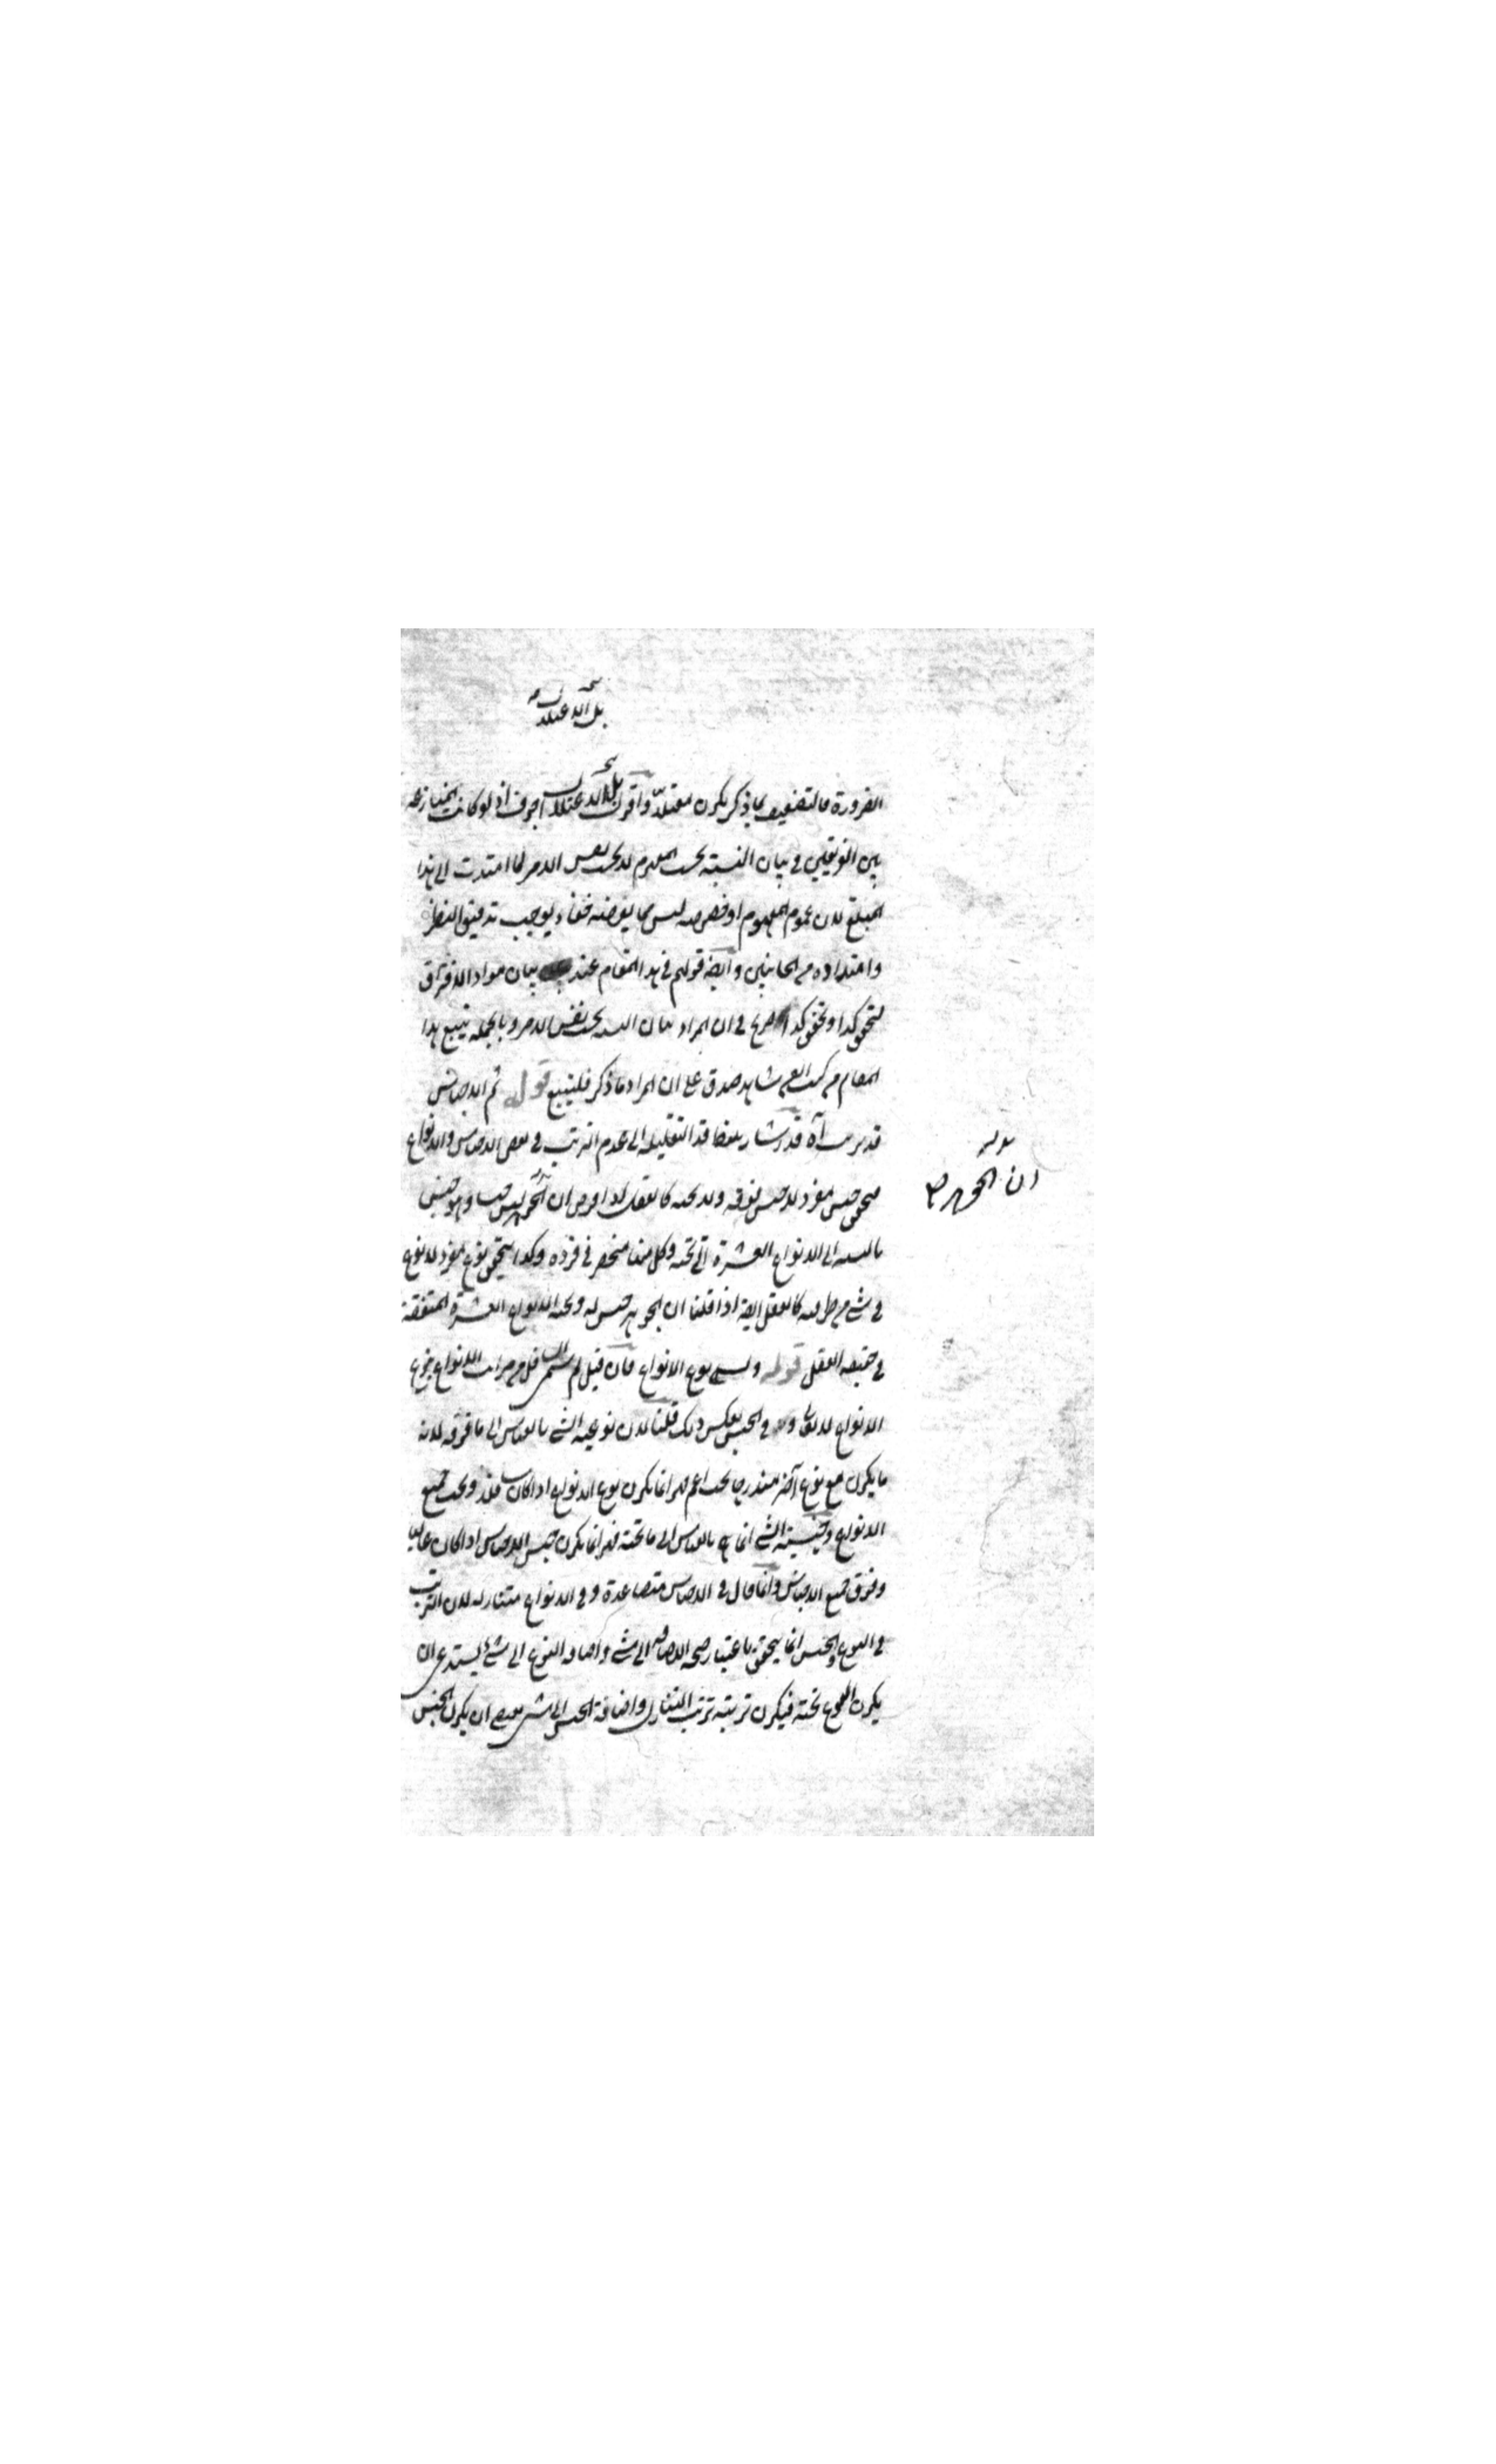 بل الاعتلال
الضرورة فالتضعيف بما ذكر يكون معتلا واقول بل الاعتلال اجوف اذ لو كانت المنازعة
بين الفريقين في بيان النسبة بحسب المفهوم لا بحسب نفس الامر لما امتدت الى هذا
المبلغ لان عموم المفهوم او خصوصه ليس مما يعرضه خفاء يوجب تدقيق النظر
وامتداده من الجانبين وايضا قولهم في هذا المقام عند بيان مواد الافتراق
لتحقق كذا وتحقق كذا صريح في ان المراد بيان النسبة بحسب نفس الامر وبالجملة تتبع هذا
المقام من كتب القوم شاهد صدق على ان المراد ما ذكر فليتتبع قوله ثم الاجناس
قد يترتب آه قد اشار بلفظة قد التقليلية الى عدم الترتب في بعض الاجناس والانواع
فيتحقق جنس مفرد لا جنس فوقه ولا تحته كالعقل اذا فرض ان الجوهر ليس جنسا وهو جنس
بالنسبة الى الانواع العشرة التي تحته وكل منها منحصر في فرده وكذا يتحقق نوع مفرد لا نوع
في شيء من طرفيه كالعقل ايضا اذا قلنا ان الجوهر جنس له وتحته الانواع العشرة المتفقة
في حقيقة العقل قوله ويسمى نوع الانواع فان قيل لم سمى السافل من مراتب الانواع بنوع
الانواع لا العالى وفي الجنس بعكس ذلك قلنا لان نوعية الشيء بالقياس الى ما فوقه لانه
ما يكون مع نوع آخر مندرجا تحت اعم فهو انما يكون نوع الانواع اذا كان سافلا وتحت جميع
الانواع وجنسية الشيء انما هي بالقياس الى ما تحته فهو انما يكون جنس الاجناس اذا كان عاليا
وفوق جميع الاجناس وانما قال في الاجناس متصاعدة وفي الانواع متنازلة لان الترتب
في النوع والجنس انما يتحقق باعتبار صحة الاضافة الى شيء واضافة النوع الى شيء يستدعى ان
يكون النوع تحته فيكون ترتبه ترتب التنازل واضافة الجنس الى شيء يقتضى ان يكون الجنس
قوله
ان الجوهر